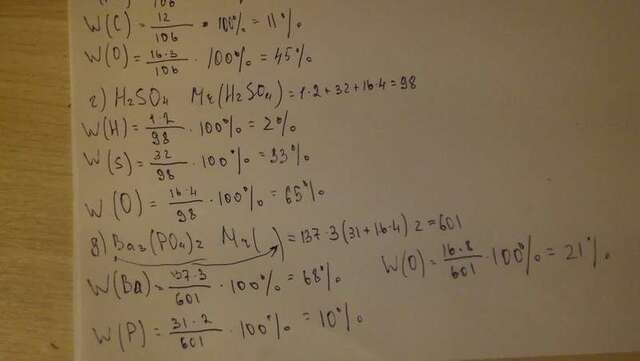 W(C) = 12/106 · 100% = 11%
W(O) = 16·3/106 · 100% = 45%
г) H₂SO₄ Mr(H₂SO₄) = 1·2+32+16·4 = 98
W(H) = 1·2/98 · 100% = 2%
W(S) = 32/98 · 100% = 33%
W(O) = 16·4/98 · 100% = 65%
д) Ba₃(PO₄)₂ Mr( ) = 137·3(31+16·4)2 = 601
W(Ba) = 137·3/601 · 100% = 68% W(O) = 16·8/601 · 100% = 21%
W(P) = 31·2/601 · 100% = 10%